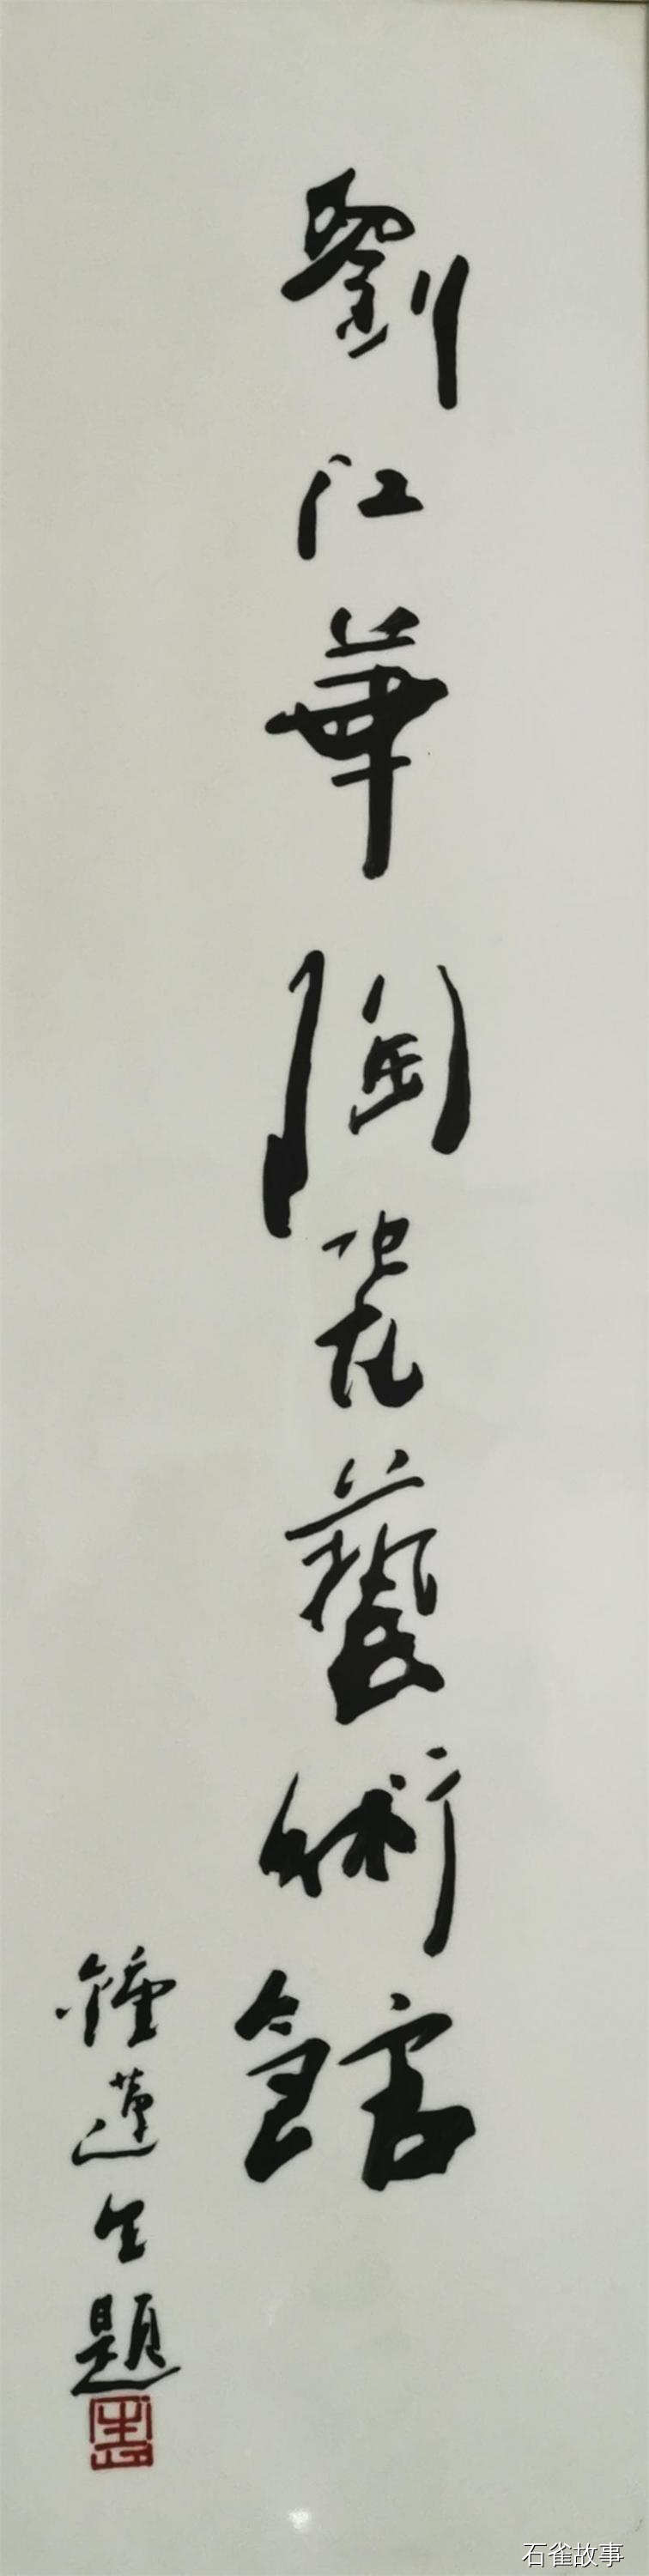 劉江華陶瓷藝術館
鍾蓮生題
石雀故事